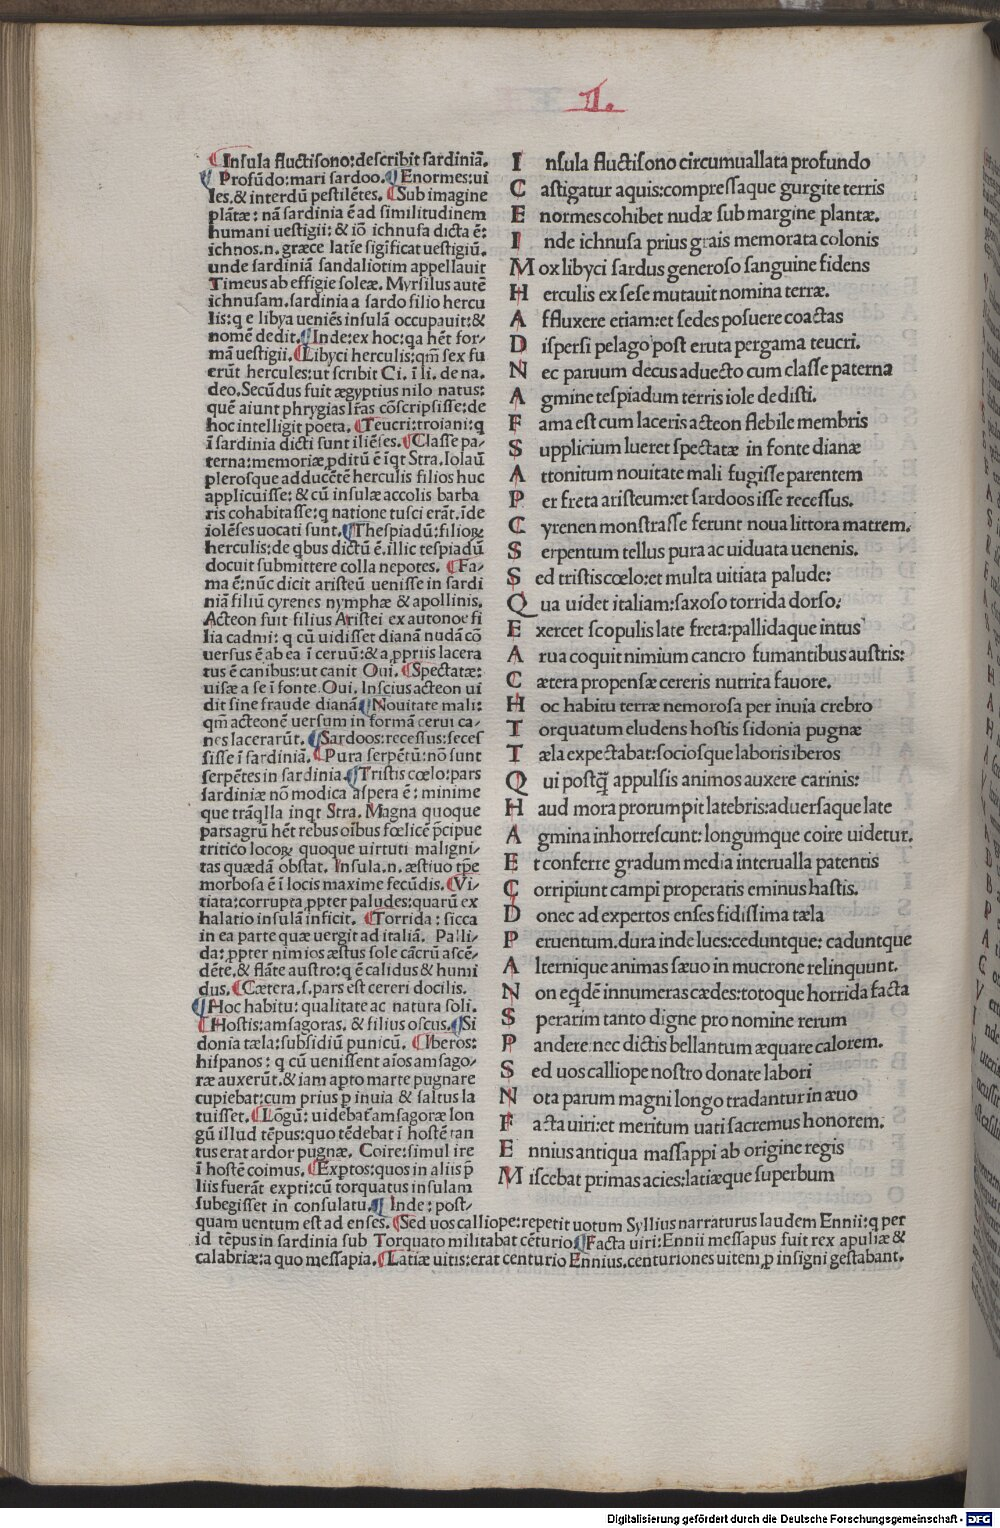 II.
¶Insula fluctisono:describit sardiniā.
¶Profūdo:mari sardoo.¶Enormes:ui
les.& interdū pestilētes. ¶Sub imagine
plātæ: nā sardinia ē ad similitudinem
humani uestigii: & iō ichnusa dicta ē:
ichnos.n. græce latīe sigīficat uestigiū.
unde sardiniā sandaliotim appellauit
Timeus ab effigie soleæ. Myrsilus autē
ichnusam.sardinia a sardo filio hercu
lis:q e libya ueniēs insulā occupauit:&
nomē dedit.¶Inde:ex hoc:qa hēt for-
mā uestigii. ¶Libyci herculis:qm̄ sex fu
erūt hercules:ut scribit Ci. ī li. de na.
deo.Secūdus fuit ægyptius nilo natus:
quē aiunt phrygias lr̄as cōscripsisse:de
hoc intelligit poeta. ¶Teucri:troiani:q
ī sardinia dicti sunt iliēses.¶Classe pa-
terna:memoriæ ꝓditū ē īqt Stra. Iolaū
plerosque adducētē herculis filios huc
applicuisse: & cū insulæ accolis barba
ris cohabitasse:q natione tusci erāt.īde
iolēses uocati sunt.¶Thespiadū:filioꝝ
herculis:de qbus dictū ē.illic tespiadū
docuit submittere colla nepotes. ¶Fa-
ma ē:nūc dicit aristeū uenisse in sardi
niā filiū cyrenes nymphæ & apollinis.
Acteon fuit filius Aristei ex autonoe fi
lia cadmi: q cū uidisset dianā nudā cō
uersus ē ab ea ī ceruū:& a ꝓpriis lacera
tus ē canibus:ut canit Oui. ¶Spectatæ:
uisæ a se ī fonte. Oui. Inscius acteon ui
dit sine fraude dianā¶Nouitate mali:
qm̄ acteonē uersum in formā cerui ca-
nes lacerarūt. ¶Sardoos:recessus:seces
sisse ī sardiniā. ¶Pura serpētū:nō sunt
serpētes in sardinia.¶Tristis cœlo:pars
sardiniæ nō modica aspera ē: minime
que trāqlla inqt Stra. Magna quoque
pars agrū hēt rebus oībus fœlicē p̄cipue
tritico locoꝝ quoque uirtuti maligni-
tas quædā obstat. Insula.n. æstiuo tp̄e
morbosa ē ī locis maxime fecūdis. ¶Vi-
tiata:corrupta ꝓpter paludes:quarū ex
halatio insulā inficit. ¶Torrida: sicca
in ea parte quæ uergit ad italiā. Palli-
da: ꝓpter nimios æstus sole cācrū ascē-
dēte.& flāte austro:q ē calidus & humi
dus. ¶Cætera.s.pars est cereri docilis.
¶Hoc habitu: qualitate ac natura soli.
¶Hostis:amsagoras. & filius oscus.¶Si
donia tæla:subsidiū punicū. ¶Iberos:
hispanos: q cū uenissent aīos amsago-
ræ auxerūt.& iam aꝑto marte pugnare
cupiebat:cum prius ꝑ inuia & saltus la
tuisset.¶Lōgū: uidebat̄ amsagoræ lon
gū illud tēpus:quo tēdebat ī hostē tan
tus erat ardor pugnæ. Coire:simul ire
ī hostē coimus. ¶Exptos:quos in aliis p̄
liis fuerāt expti:cū torquatus insulam
subegisset in consulatu.¶ Inde: post-
quam uentum est ad enses. ¶Sed uos calliope:repetit uotum Syllius narraturus laudem Ennii:q per
id tēpus in sardinia sub Torquato militabat cēturio.¶Facta uiri:Ennii messapus fuit rex apuliæ &
calabriæ:a quo messapia. ¶Latiæ uitis:erat centurio Ennius.centuriones uitem ꝓ insigni gestabant.
I nsula fluctisono circumuallata profundo
C astigatur aquis:compressaque gurgite terris
E normes cohibet nudæ sub margine plantæ.
I nde ichnusa prius grais memorata colonis
M ox libyci sardus generoso sanguine fidens
H erculis ex sese mutauit nomina terræ.
A ffluxere etiam:et sedes posuere coactas
D ispersi pelago post eruta pergama teucri.
N ec paruum decus aduecto cum classe paterna
A gmine tespiadum terris iole dedisti.
F ama est cum laceris acteon flebile membris
S upplicium lueret spectatæ in fonte dianæ
A ttonitum nouitate mali fugisse parentem
P er freta aristeum:et sardoos isse recessus.
C yrenen monstrasse ferunt noua littora matrem.
S erpentum tellus pura ac uiduata uenenis.
S ed tristis cœlo:et multa uitiata palude:
Q ua uidet italiam:saxoso torrida dorso:
E xercet scopulis late freta:pallidaque intus
A rua coquit nimium cancro fumantibus austris:
C ætera propensæ cereris nutrita fauore.
H oc habitu terræ nemorosa per inuia crebro
T orquatum eludens hostis sidonia pugnæ
T æla expectabat:sociosque laboris iberos
Q ui postq̄ appulsis animos auxere carinis:
H aud mora prorumpit latebris:aduersaque late
A gmina inhorrescunt: longumque coire uidetur.
E t conferre gradum media interualla patentis
C orripiunt campi properatis eminus hastis.
D onec ad expertos enses fidissima tæla
P eruentum.dura inde lues:ceduntque: caduntque
A lternique animas sæuo in mucrone relinquunt.
N on eqdē innumeras cædes:totoque horrida facta
S perarim tanto digne pro nomine rerum
P andere:nec dictis bellantum æquare calorem.
S ed uos calliope nostro donate labori
N ota parum magni longo tradantur in æuo
F acta uiri:et meritum uati sacremus honorem.
E nnius antiqua massappi ab origine regis
M iscebat primas acies:latiæque superbum
Digitalisierung gefördert durch die Deutsche Forschungsgemeinschaft - DFG